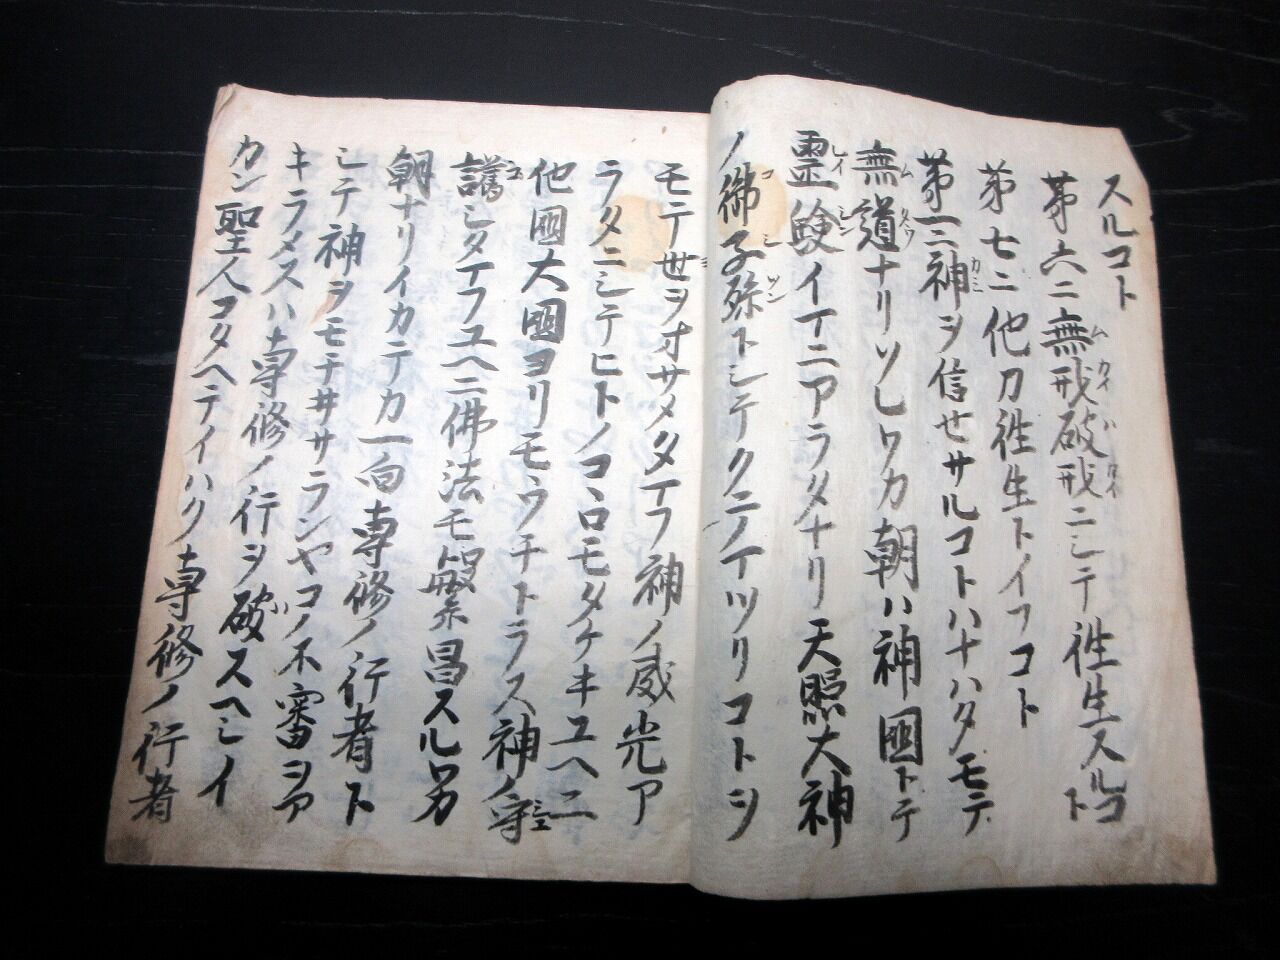 スルコト
第六ニ無戒破戒ニシテ徃生スルコト
第七ニ他力徃生トイフコト
第一ニ神ヲ信せサルコトハナハタモテ
無道ナリソレワカ朝ハ神國トテ
霊験イマニアラタナリ天照大神
ノ御子孫トシテクニノマツリコトヲ
モテ世ヲオサメタマフ神ノ威光ア
ラタニシテヒトノコヽロモタケキユヘニ
他國大國ヨリモウチトラス神ノ守
護シタマフユヘニ佛法モ繁昌スルワカ
朝ナリイカテカ一向専修ノ行者ト
シテ神ヲモチヰサランヤコノ不審ヲア
キラメスハ専修ノ行ヲ破スヘシイ
カン聖人コタヘテイハク専修ノ行者